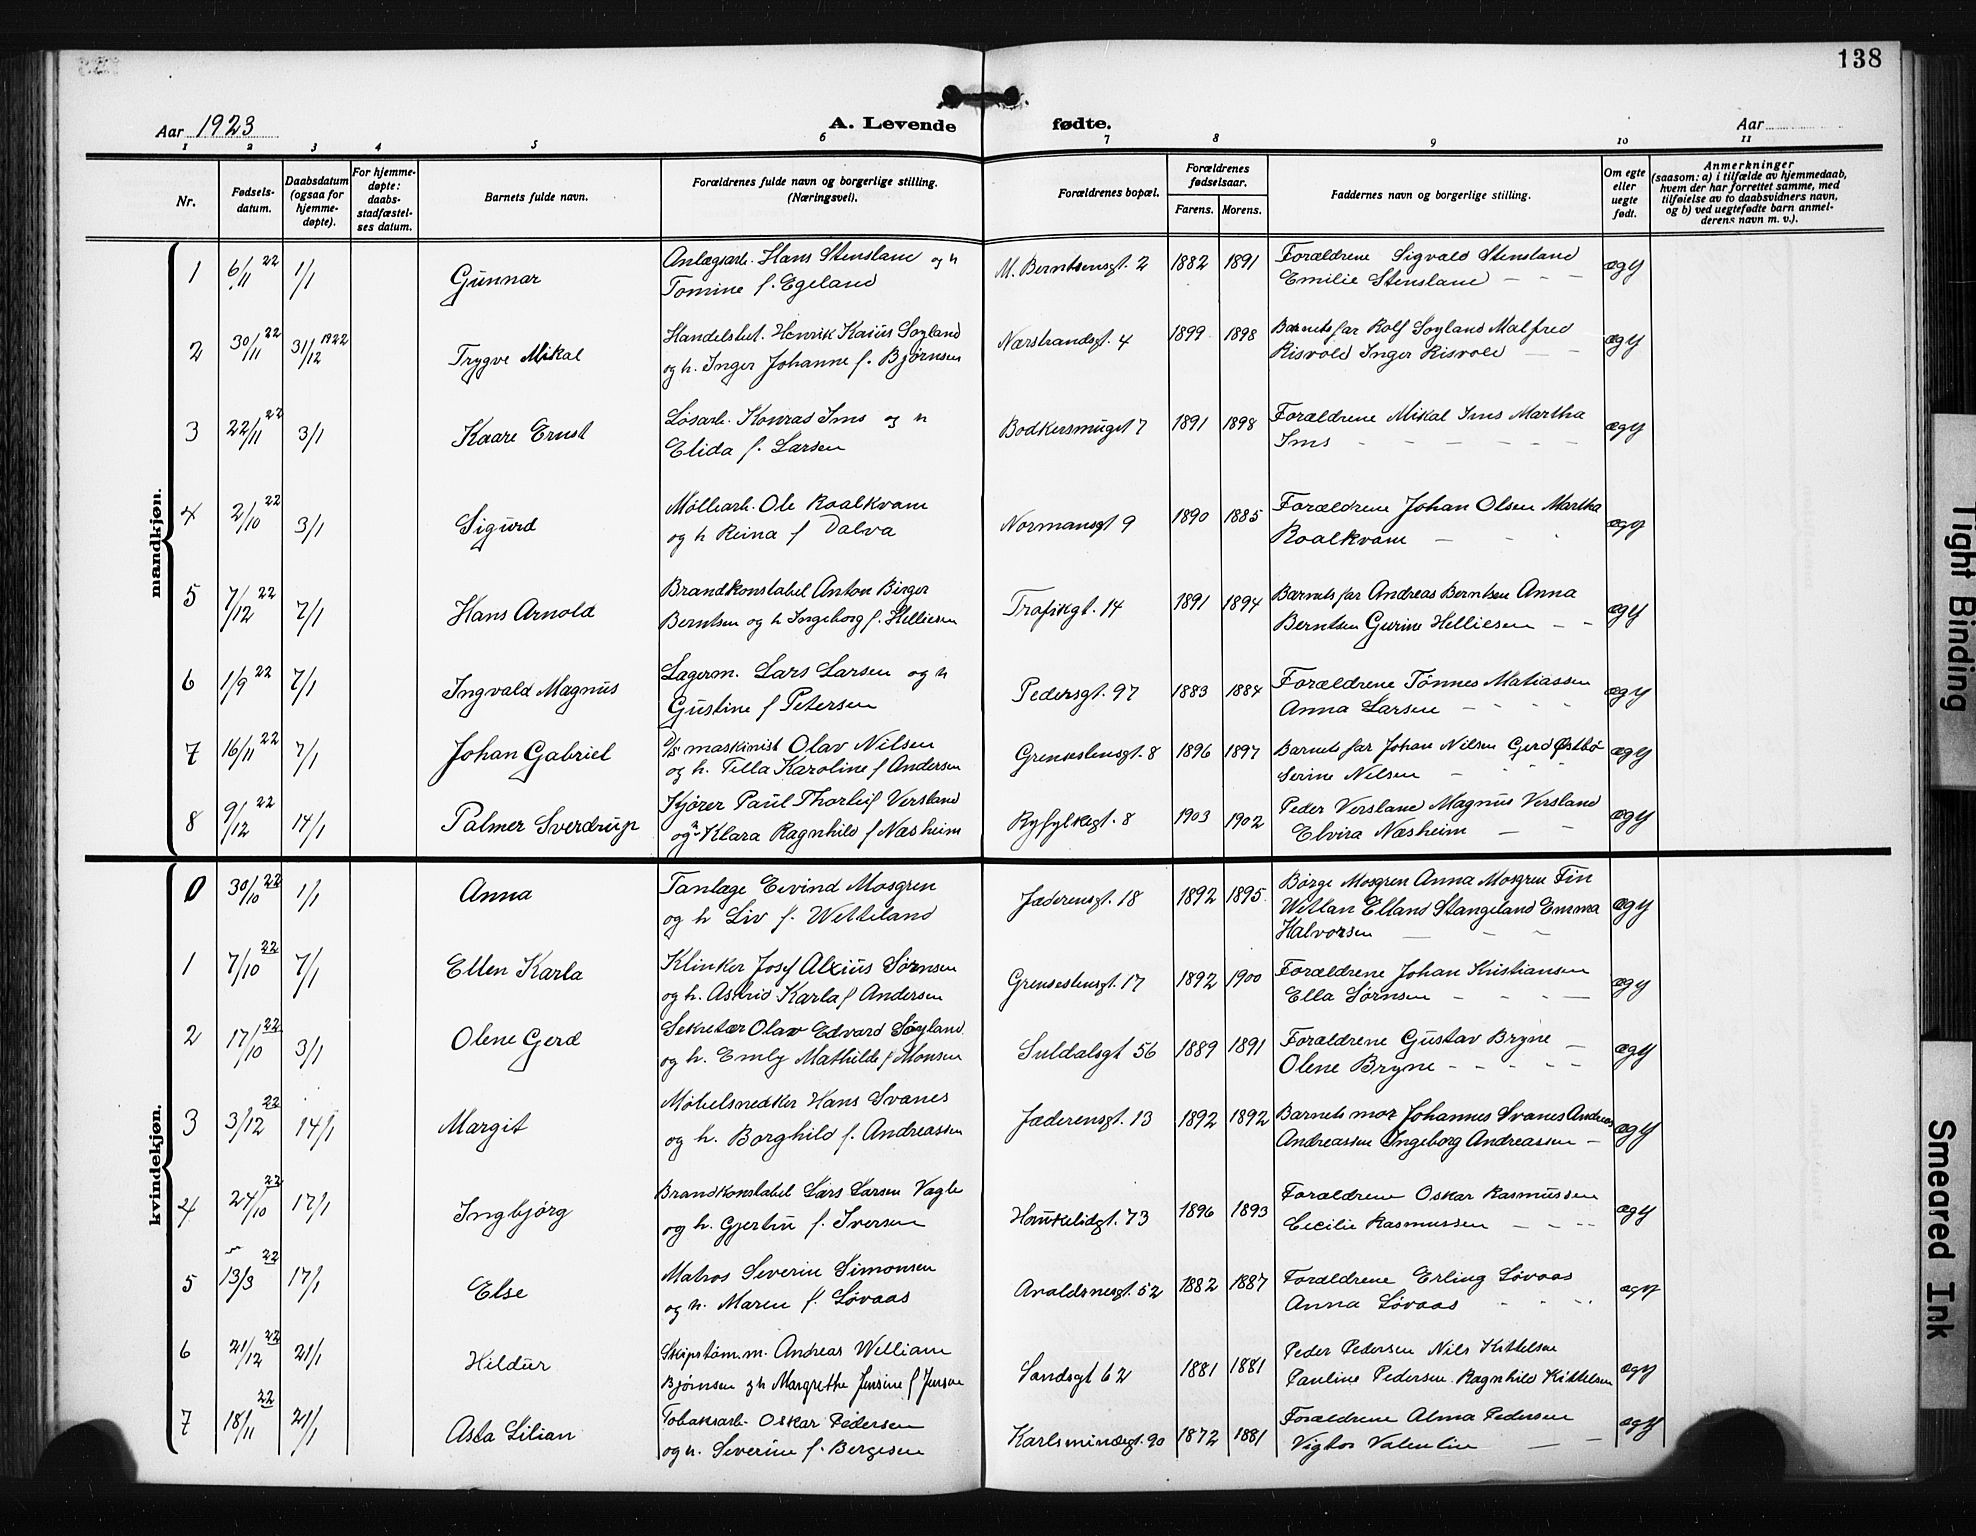 138
Aar 1923
A. Levende fødte.
Aar
1 2 3 4 5 6 7 8 9 10 11
Nr.
Fødsels-
datum.
Daabsdatum
(ogsaa for
hjemme-
døpte).
For hjemme-
døpte:
daabs-
stadfæstel-
ses datum.
Barnets fulde navn.
Forældrenes fulde navn og borgerlige stilling.
(Næringsvei).
Forældrenes bopæl.
Forældrenes
fødselsaar.
Farens. Morens.
Faddernes navn og borgerlige stilling.
Om egte
eller
uegte
født.
Anmerkninger
(saasom: a) i tilfælde av hjemmedaab,
hvem der har forrettet samme, med
tilføielse av to daabsvidners navn,
og b) ved uegtefødte barn anmel-
derens navn m. v.).
mandkjøn.
1 6/11 22 1/1 Gunnar Anlægsarb. Hans Stensland og h M. Berntsensgt. 2 1882 1891 Forældrene Sigvald Stensland ægte
Tomine f. Egeland Emilie Stensland
2 30/11 22 31/12 1922 Trygve Mikal Handelsbet. Henrik Kasius Soyland Nærstrandsgt. 4 1899 1898 Barnets far Rolf Soyland Malfred ægte
og h. Inger Johanne f. Bjørnsen Risvold Inger Risvold
3 22/11 22 3/1 Kaare Ernst Løsarb. Konrad Ims og h Bodkersmuget 7 1891 1898 Forældrene Mikal Ims Martha ægte
Elida f. Larsen Ims
4 2/10 22 3/1 Sigurd Møllearb. Ole Roalkvam Normansgt 9 1890 1885 Forældrene Johan Olsen Martha ægte
og h Reina f Dalva Roalkvam
5 7/12 22 7/1 Hans Arnold Brandkonstabel Anton Birger Trafikgt. 14 1891 1894 Barnets far Andreas Berntsen Anna ægte
Berntsen og h Ingeborg f. Helliesen Berntsen Gurine Helliesen
6 1/9 22 7/1 Ingvald Magnus Lagerm. Lars Larsen og h Pedersgt. 97 1883 1884 Forældrene Tønnes Matiassen ægte
Gustine f Petersen Anna Larsen
7 16/11 22 7/1 Johan Gabriel D/S maskinist Olav Nilsen Grenseslensgt. 8 1896 1897 Barnets far Johan Nilsen Gerd Østbø ægte
og h. Tella Karoline f Andersen Serine Nilsen
8 9/12 22 14/1 Palmer Sverdrup Kjører Paul Thorleif Versland Ryfylkegt. 8 1903 1902 Peder Versland Magnus Versland ægte
og h Klara Ragnhild f Næsheim Elvira Næsheim
kvindekjøn.
0 30/10 22 1/1 Anna Tanlæge Eivind Mosgren Jæderensgt. 18 1892 1895 Børge Mosgren Anna Mosgren Fin ægte
og h Liv f. Wetteland Wetlan Elland Stangeland Emma
Halvorsen
1 7/10 22 7/1 Ellen Karla Klinker Josef Alxius Sørnsen Grenseslensgt. 17 1892 1900 Forældrene Johan Kristiansen ægte
og h. Astrid Karla f Andersen Ella Sørnsen
2 17/10 22 3/1 Olene Gerd Sekretær Olav Edvard Søyland Suldalsgt 56 1889 1891 Forældrene Gustav Bryne ægte
og h. Emly Mathilde f Monsen Olene Bryne
3 3/12 22 14/1 Margit Møbelsnedker Hans Svanes Jæderensgt. 13 1892 1892 Barnets mor Johannes Svanes Andreas ægte
og h. Borghild f. Andreassen Andreassen Ingeborg Andreassen
4 24/10 22 17/1 Ingbjørg Brandkonstabel Lars Larsen Vagle Haukelidgt. 73 1896 1893 Forældrene Oskar Rasmussen ægte
og h. Gjertine f. Iversen Cecilie Rasmussen
5 13/3 22 17/1 Else Matros Severin Simonsen Avaldsnesgt. 52 1882 1887 Forældrene Erling Løvaas ægte
og h. Maren f. Løvaas Anna Løvaas
6 21/12 22 21/1 Hildur Skipstøm.m. Andreas William Sandsgt 62 1881 1881 Peder Pedersen Nils Kittelsen ægte
Bjørnsen og h Margrethe Jensine f Jensen Pauline Pedersen Ragnhild Kittelsen
7 18/11 22 21/1 Asta Lilian Tobaksarb. Oskar Pedersen Karlsminnegt. 90 1872 1881 Forældrene Alma Pedersen ægte
og h. Severine f. Bergesen Vigtor Valentin
Tight Binding
Smeared Ink